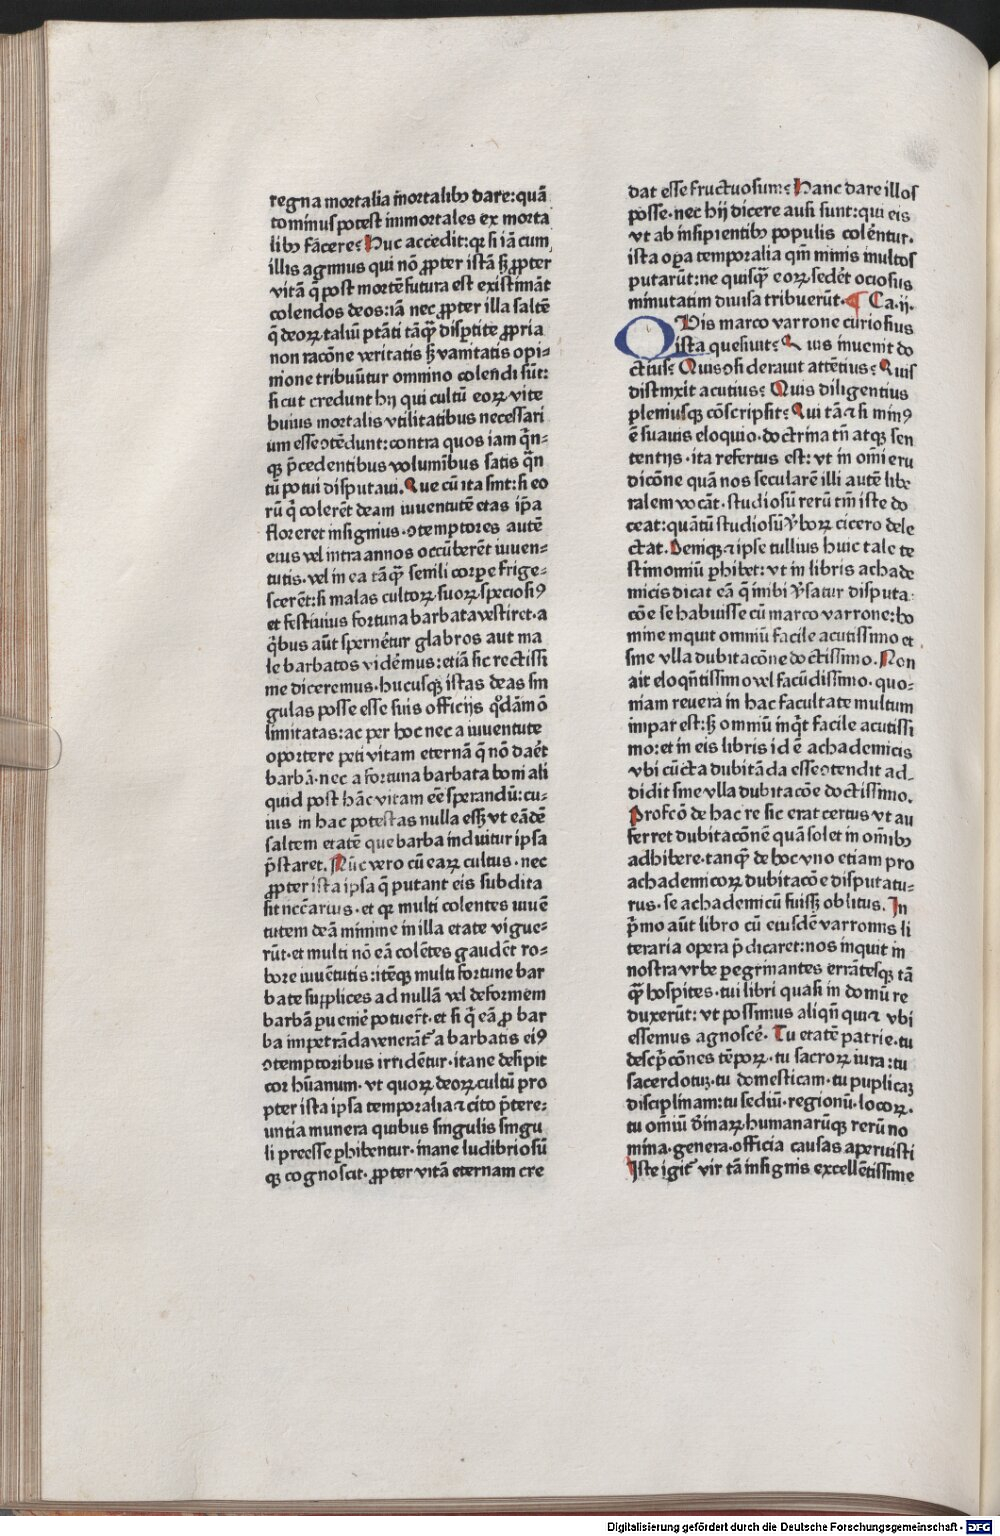 regna mortalia īmortalibꝫ dare:quā
to minus potest immortales ex morta
libꝫ facere? Huc accedit:qꝛ si iā cum
illis agimus qui nō ꝓpter istā sꝫ ꝓpter
vitā q̄ post mortē futura est existimāt
colendos deos:iā nec ꝓpter illa saltē
q̄ deoꝝ taliū ptāti tāq̄ꝫ disꝑtite ꝓpria
non racōne veritatis sꝫ vanitatis opi-
nione tribuūtur ommino colendi sūt:
sicut credunt hij qui cultū eoꝝ vite
huius mortalis vtilitatibus necessari
um esse ꝯtēdunt:contra quos iam q̄n-
qꝫ p̄cedentibus volumībus satis q̄n
tū potui disputaui. Que cū ita sint:si eo
rū q̄ colerēt deam iuuentutē etas ip̄a
floreret insignius·ꝯtemptores autē
eius vel intra annos occūberēt iuuen-
tutis·vel in ea tāq̄ꝫ senili corꝑe frige-
scerēt:si malas cultoꝝ suoꝝ speciosiꝰ
et festiuius fortuna barbata vestiret·a
q̄bus aūt spernētur glabros aut ma
le barbatos vidēmus:etiā sic rectissi
me diceremus·hucusqꝫ istas deas sin
gulas posse esse suis officijs qͦdāmō
limitatas:ac per hoc nec a iuuentute
oportere peti vitam eternā q̄ nō daēt
barbā·nec a fortuna barbata boni ali
quid post hāc vitam eē sperandū:cu-
ius in hac potestas nulla essꝫ vt eādē
saltem etatē que barba induitur ipsa
p̄staret. Nūc vero cū eaꝝ cultus·nec
ꝓpter ista ipsa q̄ putant eis subdita
sit nccāarius·et qꝛ multi colentes iuuē
tutem deā minime in illa etate vigue-
rūt·et multi nō eā colētes gaudēt ro-
bore iuuētutis:itēqꝫ multi fortune bar
bate supplices ad nullā vel deformem
barbā ꝑuenie potuer̄t·et si q̄ eā ꝓ bar
ba impetrāda venerāt᷑ a barbatis eiꝰ
ꝯtemptoribus irridētur·itane desipit
cor hūanum·vt quoꝝ deoꝝ cultū pro
pter ista ipsa temporalia ⁊ cito p̄tere-
untia munera quibus singulis singu
li preesse ꝑhibentur·inane ludibriosū
qꝫ cognoscit·ꝓpter vitā eternam cre
dat esse fructuosum? Hanc dare illos
posse·nec hij dicere ausi sunt:qui eis
vt ab insipientibꝫ populis colēntur·
ista oꝑa temporalia qm̄ nimis multos
putarūt:ne quisq̄ꝫ eoꝝ sedēt ociosus
minutatim diuisa tribuerūt. ¶ Ca·ij.
QVis marco varrone curiosius
ista quesiuit? Quis inuenit do
ctius? Quis ꝯsiderauit attētius? Quis
distinxit acutius? Quis diligentius
pleniusqꝫ cōscripsit? Qui tā⁊si minꝰ
ē suauis eloquio·doctrina tn̄ atqꝫ sen
tentijs·ita refertus est:vt in om̄i eru
dicōne quā nos secularē illi autē libe
ralem vocāt·studiosū rerū tm̄ iste do
ceat:quātū studiosū v̓boꝝ cicero dele
ctat. Deniqꝫ ⁊ ipse tullius huic tale te
stimoniū ꝑhibet:vt in libris achade
micis dicat eā q̄ inibi v̓satur disputa-
cōe se habuisse cū marco varrone:ho
mine inquit omniū facile acutissimo et
sine vlla dubitacōne doctissimo. Non
ait eloqn̄tissimo vel facūdissimo·quo-
niam reuera in hac facultate multum
impar est:sꝫ omniū inq̄t facile acutissi
mo:et in eis libris id ē achademicis
vbi cūcta dubitāda esse ꝯtendit ad-
didit sine vlla dubitacōe doctissimo.
Profcō de hac re sic erat certus vt au
ferret dubitacōnē quā solet in om̄ibꝫ
adhibere·tanq̄ꝫ de hoc vno etiam pro
achademicoꝝ dubitacōe disputatu-
rus·se achademicū fuissꝫ oblitus. In
p̄mo aūt libro cū eiusdē varronis li
teraria opera p̄dicaret:nos inquit in
nostra vrbe peregrinantes errātesqꝫ tā
q̄ꝫ hospites·tui libri quasi in domū re
duxerūt:vt possimus aliqn̄ qui ⁊ vbi
essemus agnoscē. Tu etatē patrie·tu
descp̄cōnes tēpoꝝ·tu sacroꝝ iura:tu
sacerdotuꝫ·tu domesticam·tu puplicaꝫ
disciplinam:tu sediū·regionū·locoꝝ·
tu omiū diuinaꝝ humanarūqꝫ rerū no
mina·genera·officia causas aperuisti
Iste igit᷑ vir tā insignis excellētissime
Digitalisierung gefördert durch die Deutsche Forschungsgemeinschaft - DFG